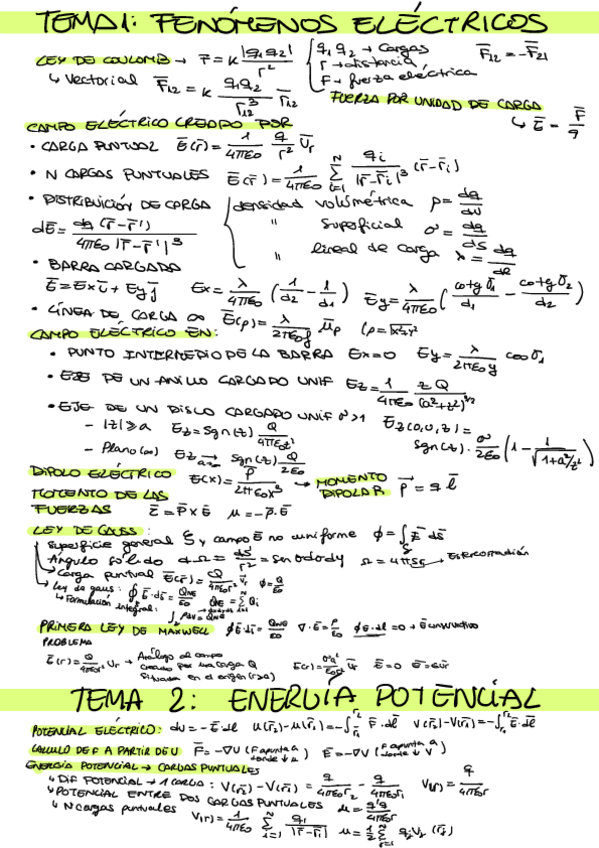 TEMA 1: FENÓMENOS ELÉCTRICOS
LEY DE COULOMB → F = K |q₁q₂| / r² { q₁ q₂ → cargas F̄₁₂ = -F̄₂₁
r → distancia
F → fuerza eléctrica
↳ Vectorial F̄₁₂ = K q₁q₂ / r₁₂³ r̄₁₂
FUERZA POR UNIDAD DE CARGA
↳ Ē = F̄ / q
CAMPO ELÉCTRICO CREADO POR
• CARGA PUNTUAL Ē(r̄) = 1/4πε₀ q/r² ūr
• N CARGAS PUNTUALES Ē(r̄) = 1/4πε₀ Σ qi / |r̄-r̄i|³ (r̄-r̄i)
• DISTRIBUCIÓN DE CARGA { densidad volumétrica ρ = dq/dv
dĒ = dq (r̄-r̄') / 4πε₀ |r̄-r̄'|³
" superficial σ = dq/ds
" lineal de carga λ = dq/dl
• BARRA CARGADA
Ē = Ex ū + Ey j̄ Ex = λ/4πε₀ (1/d₂ - 1/d₁) Ēy = λ/4πε₀ (cotg θ₁/d₁ - cotg θ₂/d₂)
• LÍNEA DE CARGA ∞ Ē(ρ) = λ/2πε₀ρ ūρ
CAMPO ELÉCTRICO EN:
• PUNTO INTERMEDIO DE LA BARRA Ex=0 Ey = λ/2πε₀y cos θ₁
• EJE DE UN ANILLO CARGADO UNIF Ez = 1/4πε₀ zQ/(a²+z²)^3/2
• EJE DE UN DISCO CARGADO UNIF Ez(0,0,z) =
- |z| ≫ a Ez = Sgn(z) Q/4πε₀z² Sgn(z) · σ/2ε₀ (1 - 1/√(1+a²/z²))
- Plano (∞) Ez → sgn(z) Q/2ε₀
DIPOLO ELÉCTRICO E(x) = P/2πε₀x³ → MOMENTO DIPOLAR P̄ = q l̄
MOMENTO DE LAS
FUERZAS = P̄ × Ē u = -P̄·Ē
LEY DE GAUSS:
Superficie general S y campo Ē no uniforme ϕ = ∫ Ē ds̄
Ángulo sólido dΩ = ds/r² = senθdθdφ Ω = 4π → Estereorradián
Carga puntual Ē(r̄) = Q/4πε₀r² ūr ϕ = Q/ε₀
↳ Ley de gaus: ∮ Ē·ds̄ = /ε₀ = Σ Qi
↳ Formulación integral:
PRIMERA LEY DE MAXWELL ∮Ē·ds̄ = /ε₀ ∇·Ē = ρ/ε₀ ∮Ē·dl = 0 → Ē conservativo
PROBLEMA
Ē(r) = Q/4πε₀r² ūr → Análogo al campo
creado por una carga Q
situada en el origen Ē=0
TEMA 2: ENERGÍA POTENCIAL
POTENCIAL ELÉCTRICO: dv = -Ē·dl u(r₂)-u(r₁) = -∫ F̄·dl̄ V(r₂)-V(r₁) = -∫ Ē·dl̄
CALCULO DE F A PARTIR DE U F̄ = -∇U (F apunta a donde ↓ u) Ē = -∇V (F apunta a donde ↓ V)
ENERGIA POTENCIAL → CARGAS PUNTUALES
↳ DIF POTENCIAL → 1 CARGA: V(r₂) - V(r₁) = q/4πε₀r₂ - q/4πε₀r₁ V(r) = q/4πε₀r
↳ POTENCIAL ENTRE DOS CARGAS PUNTUALES u = q'q/4πε₀r
↳ N cargas puntuales V(r) = 1/4πε₀ Σ qi/|r̄-r̄i| u = 1/2 Σ qj Vj (r̄j)